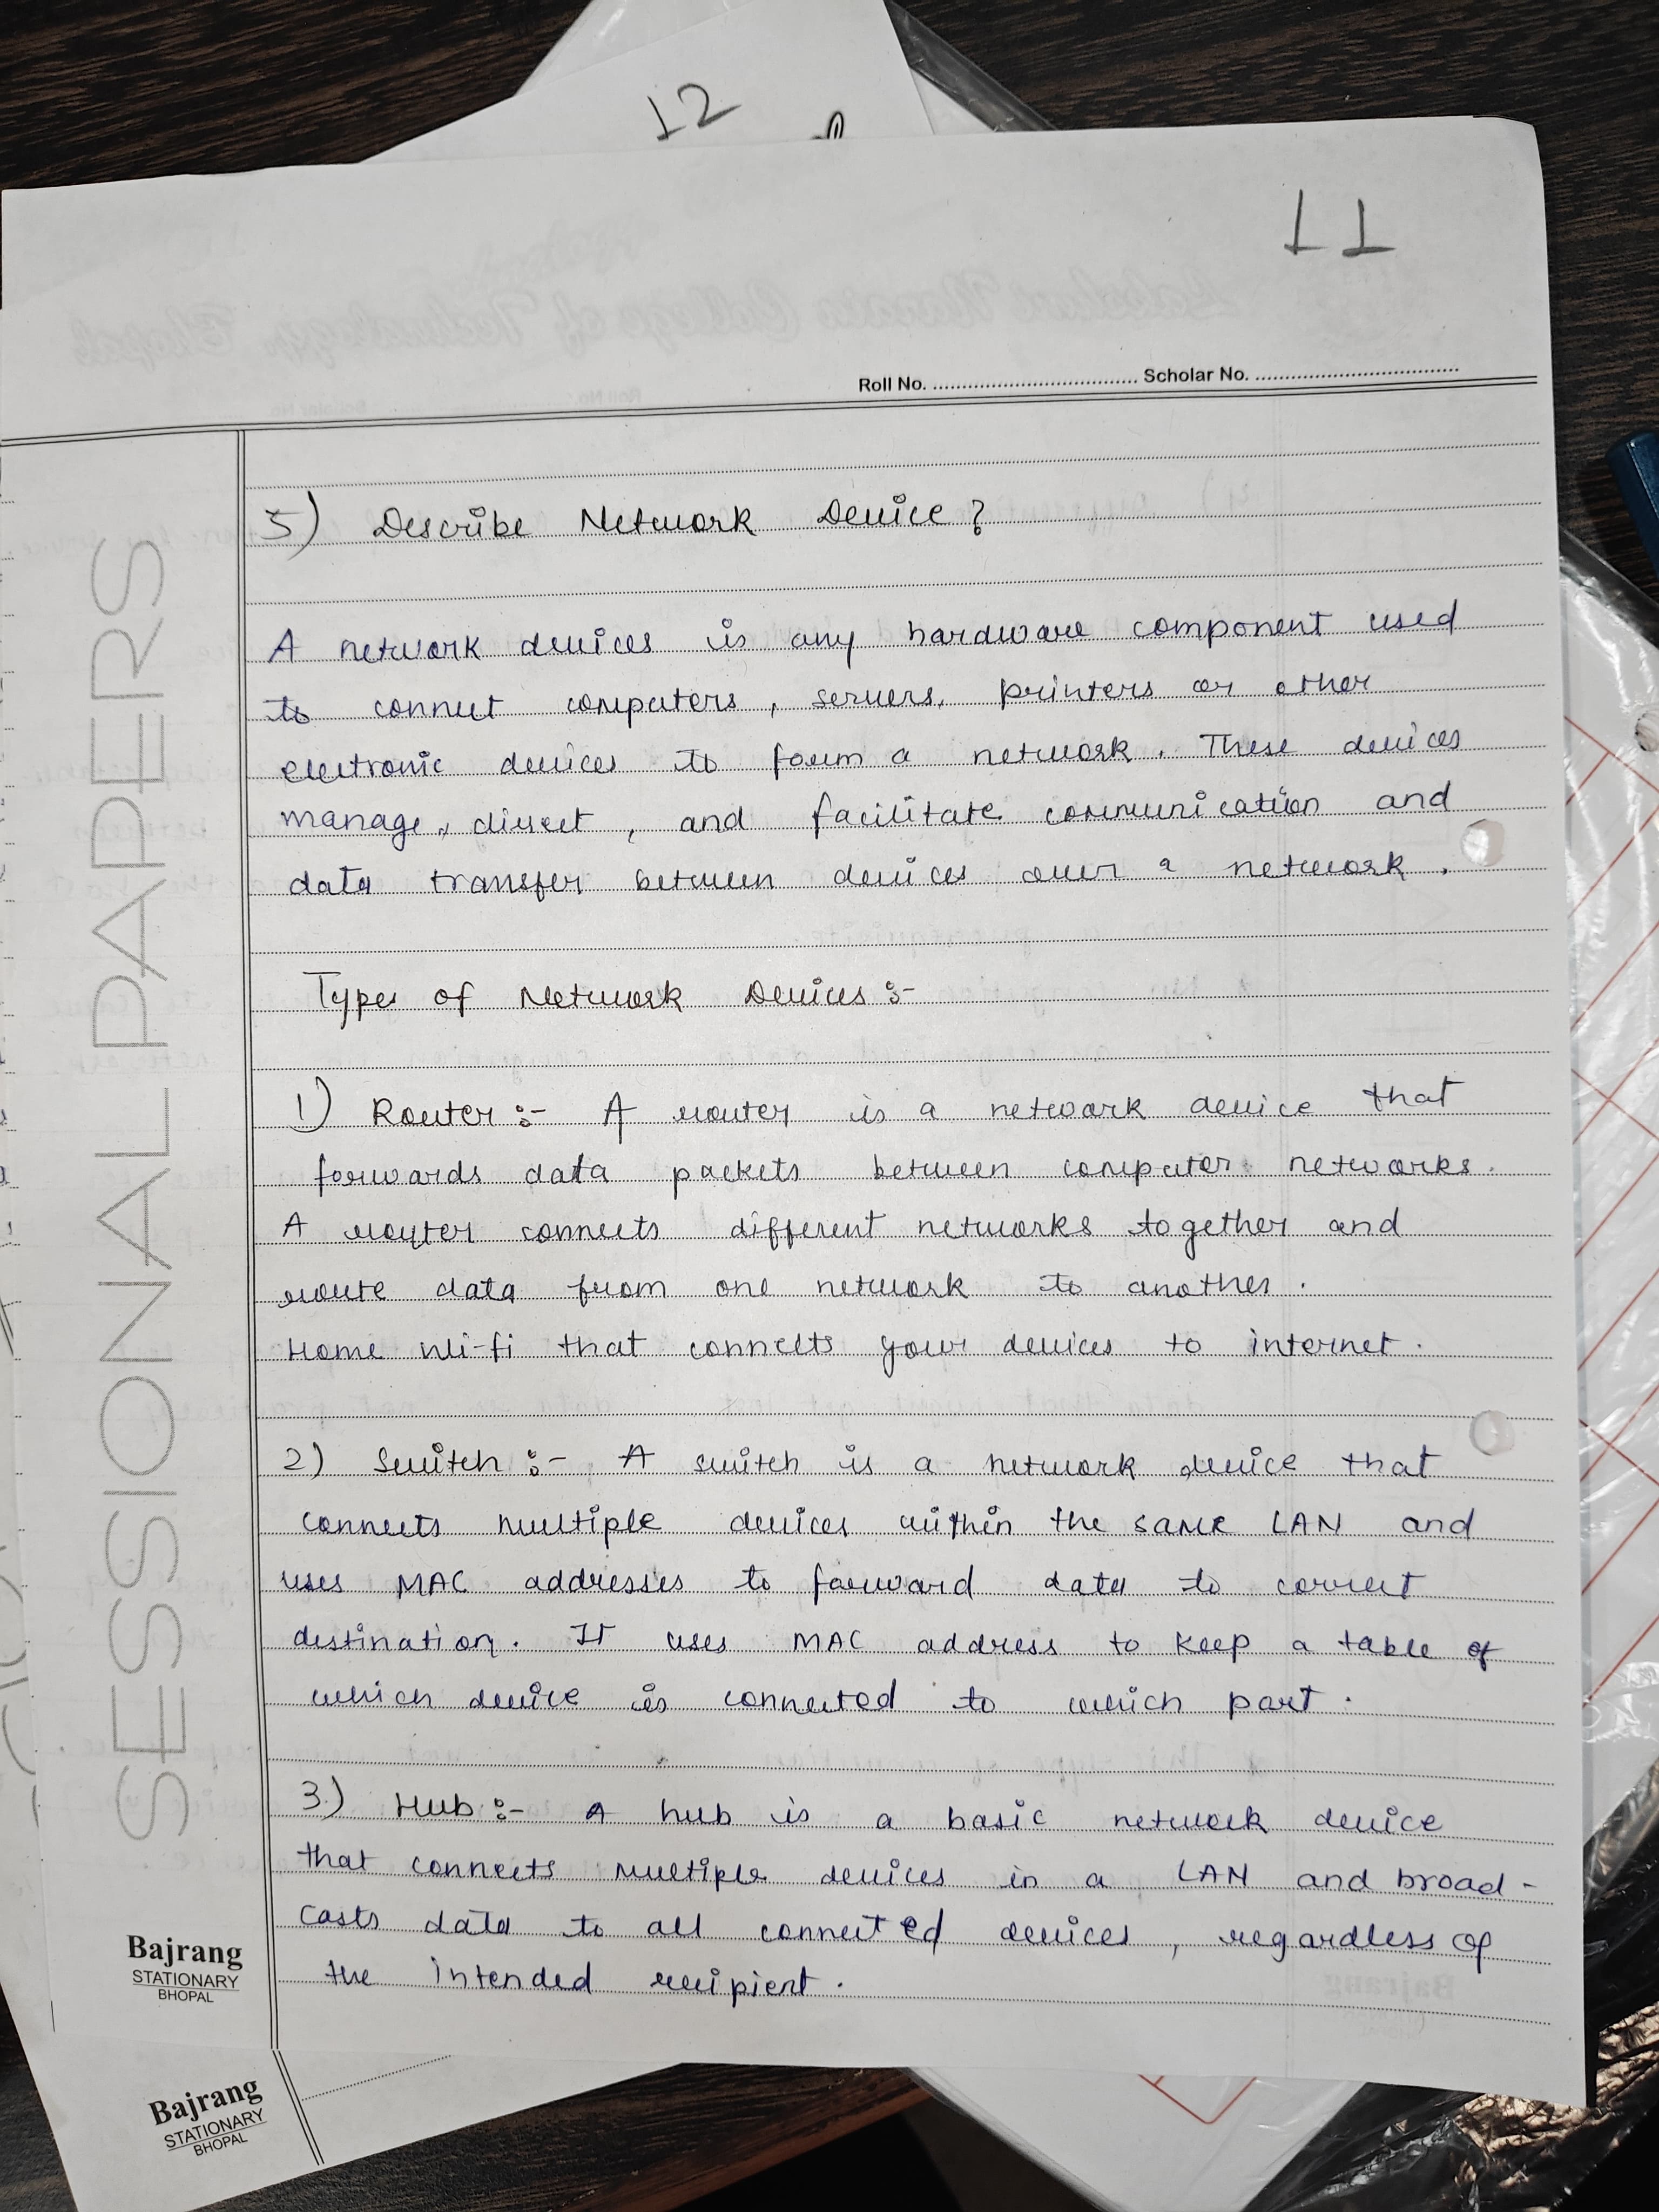 12
11
Roll No. .................................. Scholar No. ..................................
SESSIONAL PAPERS
5) Describe Network Device?
A network devices is any hardware component used
to connect computers, servers, printers or other
electronic devices to form a network. These devices
manage, direct, and facilitate communication and
data transfer between devices over a network.
Types of Network Devices :-
1) Router :- A router is a network device that
forwards data packets between computer networks.
A router connects different networks together and
route data from one network to another.
Home Wi-fi that connects your devices to internet.
2) Switch :- A switch is a network device that
connects multiple devices within the same LAN and
uses MAC addresses to forward data to correct
destination. It uses MAC address to keep a table of
which device is connected to which part.
3) Hub :- A hub is a basic network device
that connects multiple devices in a LAN and broad-
casts data to all connected devices, regardless of
the intended recipient.
Bajrang
STATIONARY
BHOPAL
Bajrang
STATIONARY
BHOPAL